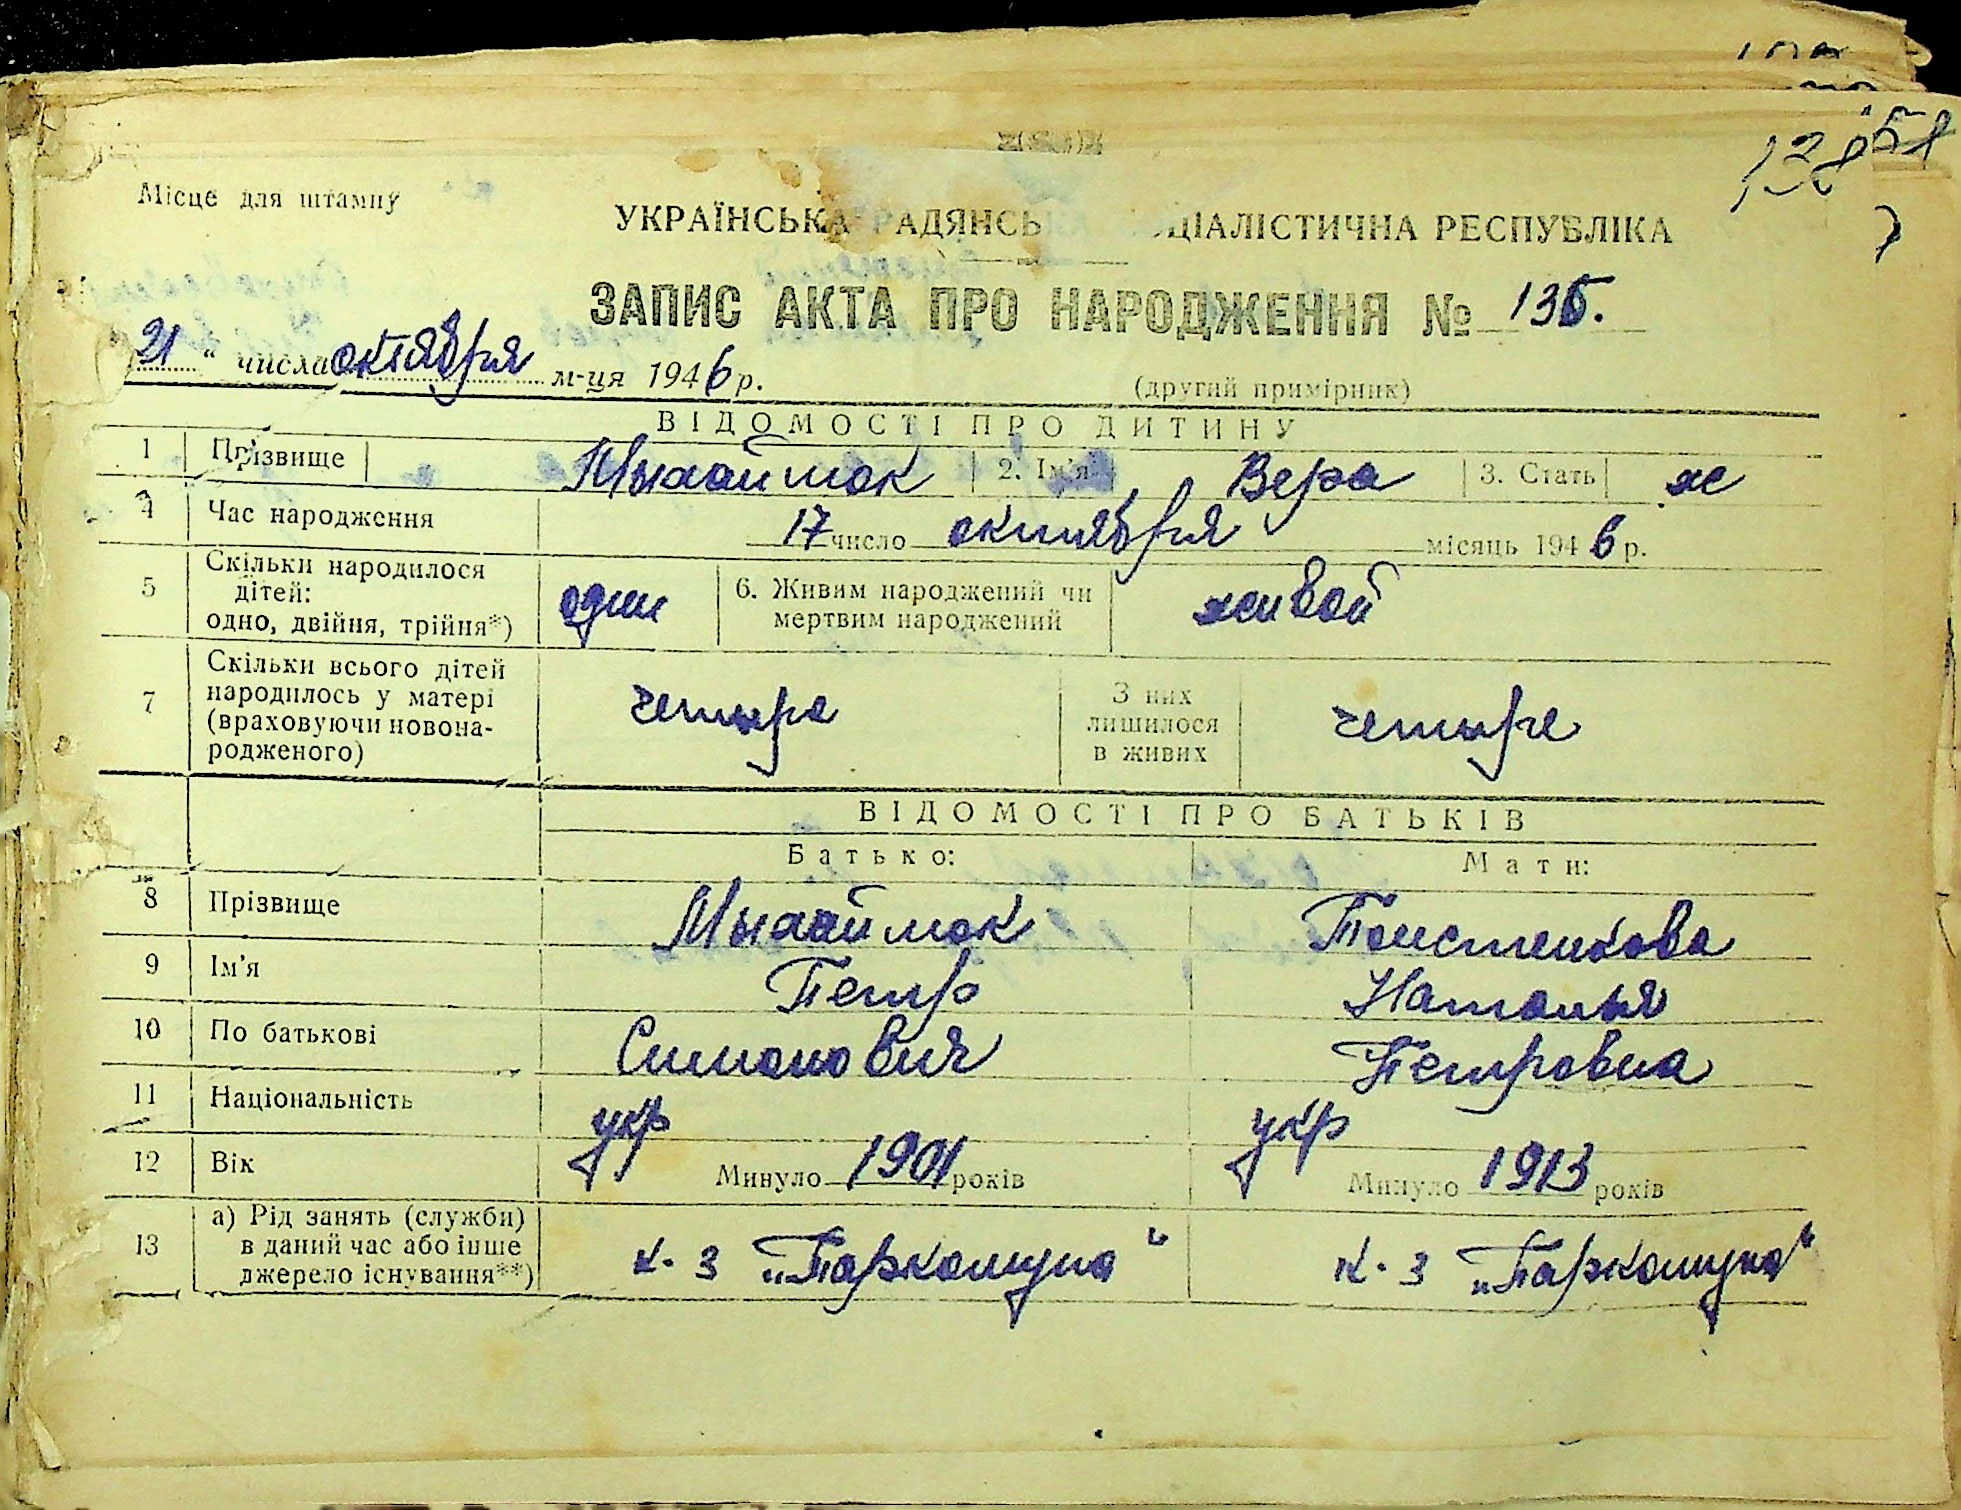 Місце для штампу
УКРАЇНСЬКА РАДЯНСЬ ЦІАЛІСТИЧНА РЕСПУБЛІКА
ЗАПИС АКТА ПРО НАРОДЖЕННЯ №
21 " числа октября м-ця 1946 р. (другий примірник)
ВІДОМОСТІ ПРО ДИТИНУ
1 Прізвище 2. Ім'я Вера 3. Стать ж
4 Час народження 17 число октября місяць 1946 р.
5 Скільки народилося дітей: одно, двійня, трійня*) один 6. Живим народжений чи мертвим народжений живой
7 Скільки всього дітей народилось у матері (враховуючи новонародженого) четыре З них лишилося в живих четыре
ВІДОМОСТІ ПРО БАТЬКІВ
Батько: Мати:
8 Прізвище
9 Ім'я Петр Наталья
10 По батькові Симонович Петровна
11 Національність укр укр
12 Вік Минуло 1901 років Минуло 1913 років
13 а) Рід занять (служби) в даний час або інше джерело існування**) к-з „Паркомуна“ к-з „Паркомуна“